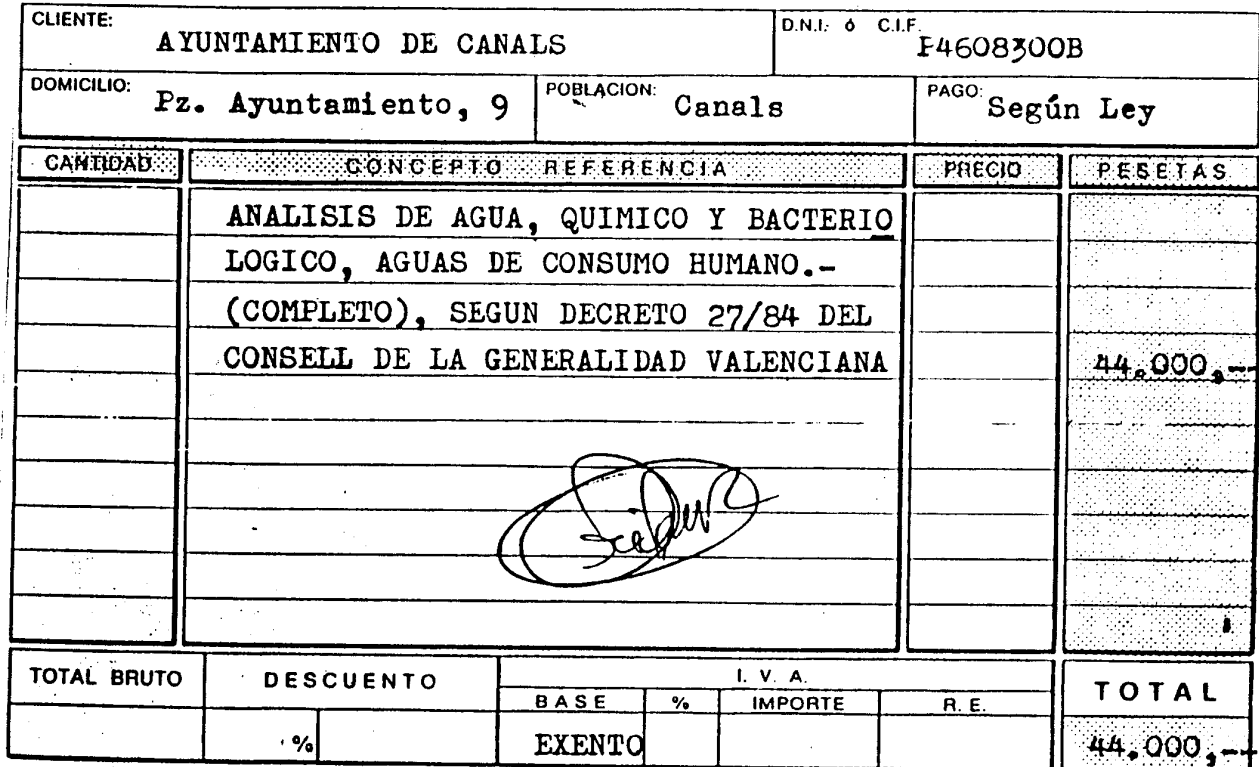 CLIENTE: AYUNTAMIENTO DE CANALS D.N.I. ó C.I.F. P4608300B
DOMICILIO: Pz. Ayuntamiento, 9 POBLACION: Canals PAGO: Según Ley
CANTIDAD CONCEPTO REFERENCIA PRECIO PESETAS
ANALISIS DE AGUA, QUIMICO Y BACTERIO
LOGICO, AGUAS DE CONSUMO HUMANO.-
(COMPLETO), SEGUN DECRETO 27/84 DEL
CONSELL DE LA GENERALIDAD VALENCIANA 44.000,--
TOTAL BRUTO DESCUENTO I. V. A. TOTAL
BASE % IMPORTE R. E.
% EXENTO 44.000,--